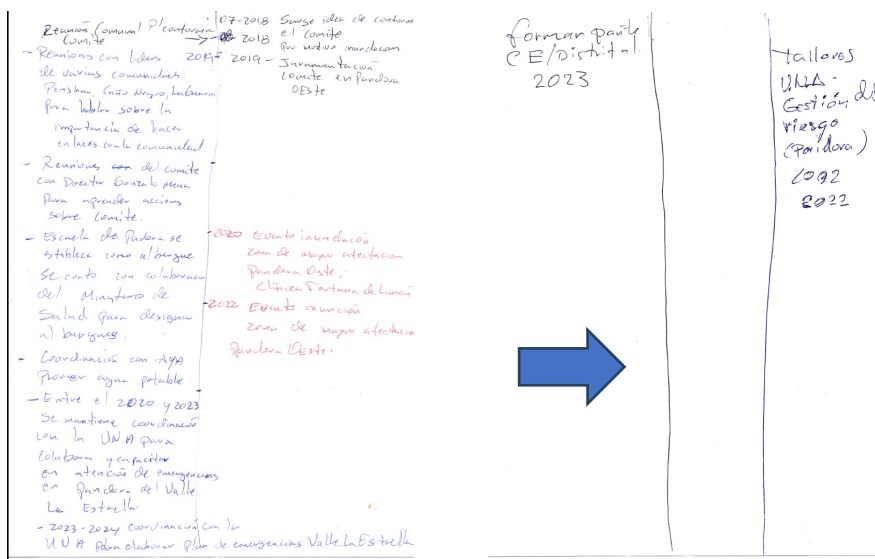 Reunión Comunal P/conformar
Comite
- Reuniones con lideres 2019
de varias comunidades.
Penshur, Caño Negro,
para hablar sobre la
importancia de hacer
enlaces con la comunidad
- Reuniones del comite
con Director Gonzalo Mena
para aprender acciones
sobre Comite.
- Escuela de Pandora se
establece como albergue
Se conto con colaboracion
del Ministerio de
Salud para designar
albergues.
- Coordinación con AyA
proveer agua potable
- Entre el 2020 y 2023
Se mantiene coordinación
con la UNA para
colaborar y capacitar
en atención de emergencias
en Pandora del Valle
La Estrella.
- 2023-2024 coordinación con la
UNA para elaborar plan de emergencias Valle La Estrella
07-2018 Surge idea de conformar
2018 el comite
por motivo inundacion
2019 - Juramentación
Comite en Pandora
OEste
-2020 Evento inundación
zona de mayor afectacion
Pandora Oste.
Clinica Fortuna de Limón
-2022 Evento inunción
zona de mayor afectacio
Pandora OEste.
formar parte
CE/Distrital.
2023
talleres
UNA -
Gestión de
riesgo
(Pandora)
2022
2022